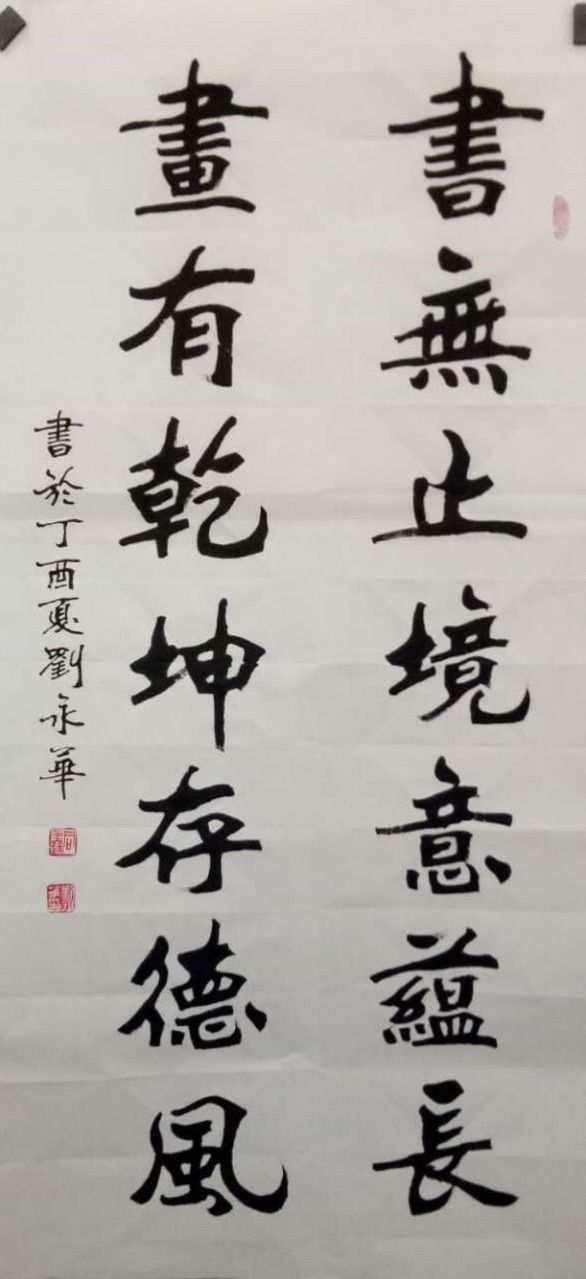 書無止境意蘊長
畫有乾坤存德風
書於丁酉夏劉永華